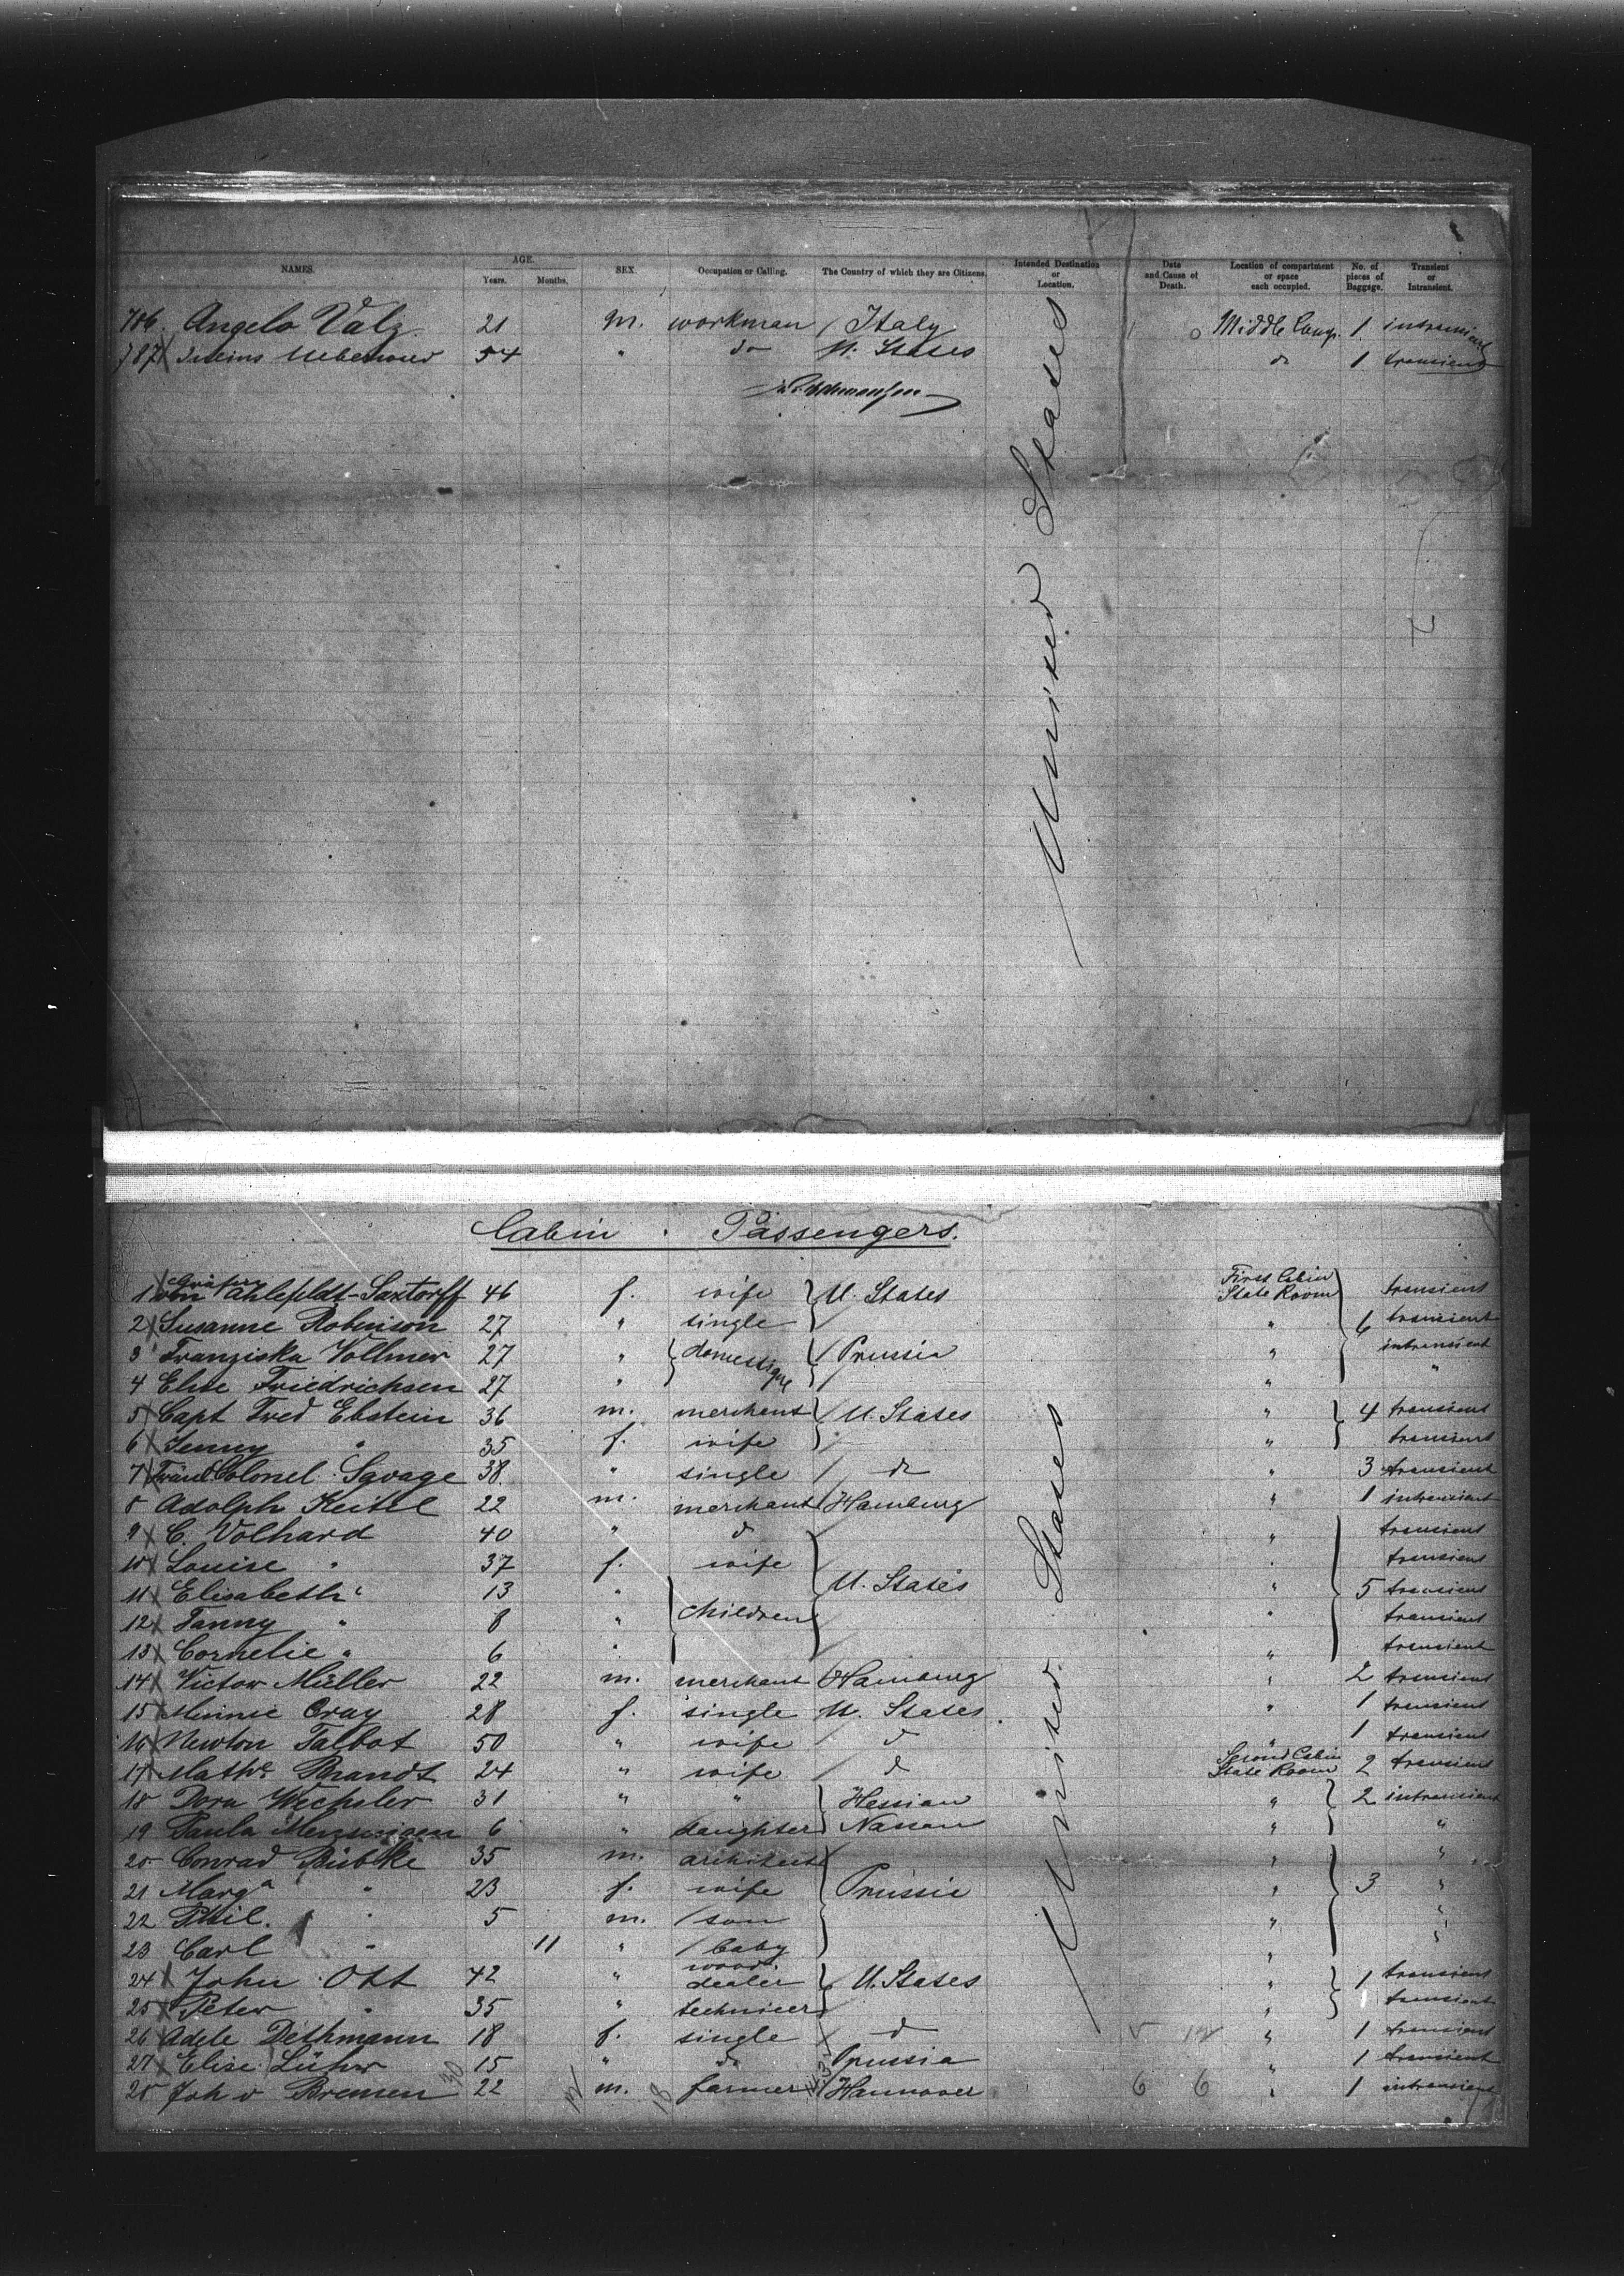 NAMES. AGE. Years. Months. SEX. Occupation or Calling. The Country of which they are Citizens. Intended Destination or Location. Date and Cause of Death. Location of compartment or space each occupied. No. of pieces of Baggage. Transient or Intransient.
786. Angelo Valz 21 m. workman Italy Middle Comp. 1 intransient
787 54 " do U. States do 1 transient
United States
Cabin Passengers.
1 Gräfin von Ahlefeldt-Saxtorff 46 f. wife U. States First Cabin State Room transient
2 Susanne Robinson 27 " single " 6 transient
3 Franziska Vollmer 27 " domestique Prussia " intransient
4 Elise Friedrichsen 27 " " "
5 Capt Fred Ebstein 36 m. merchant U. States " 4 transient
6 Jenny " 35 f. wife " transient
7 Colonel Savage 38 " single do " 3 transient
8 Adolph Keitel 22 m. merchant Hamburg " 1 intransient
9 C. Volhard 40 " d " transient
10 Louise " 37 f. wife " transient
11 Elisabeth " 13 " children U. States " 5 transient
12 Fanny " 8 " " transient
13 Cornelie " 6 " " transient
14 Victor Müller 22 m. merchant Hamburg " 2 transient
15 Minnie Cray 28 f. single U. States " 1 transient
16 Newton Talbot 50 " wife d " 1 transient
17 Mathe Brandt 24 " wife d Second Cabin State Room 2 transient
18 Dora Wechsler 31 " " Hessian " 2 intransient
19 Paula 6 " daughter Nassau " "
20 Conrad Bübcke 35 m. architect " "
21 Marga " 23 f. wife Prussia " 3 "
22 Phil. " 5 m. son " "
23 Carl " 11 " baby " "
24 John Ott 42 " wood dealer U. States " 1 transient
25 Peter " 35 " technicer " 1 transient
26 Adele Dethmann 18 f. single d " 1 transient
27 Elise Lühr 15 " do Prussia " 1 transient
28 Joh v Bremen 22 m. farmer Hannover 6 6 " 1 intransient
United States